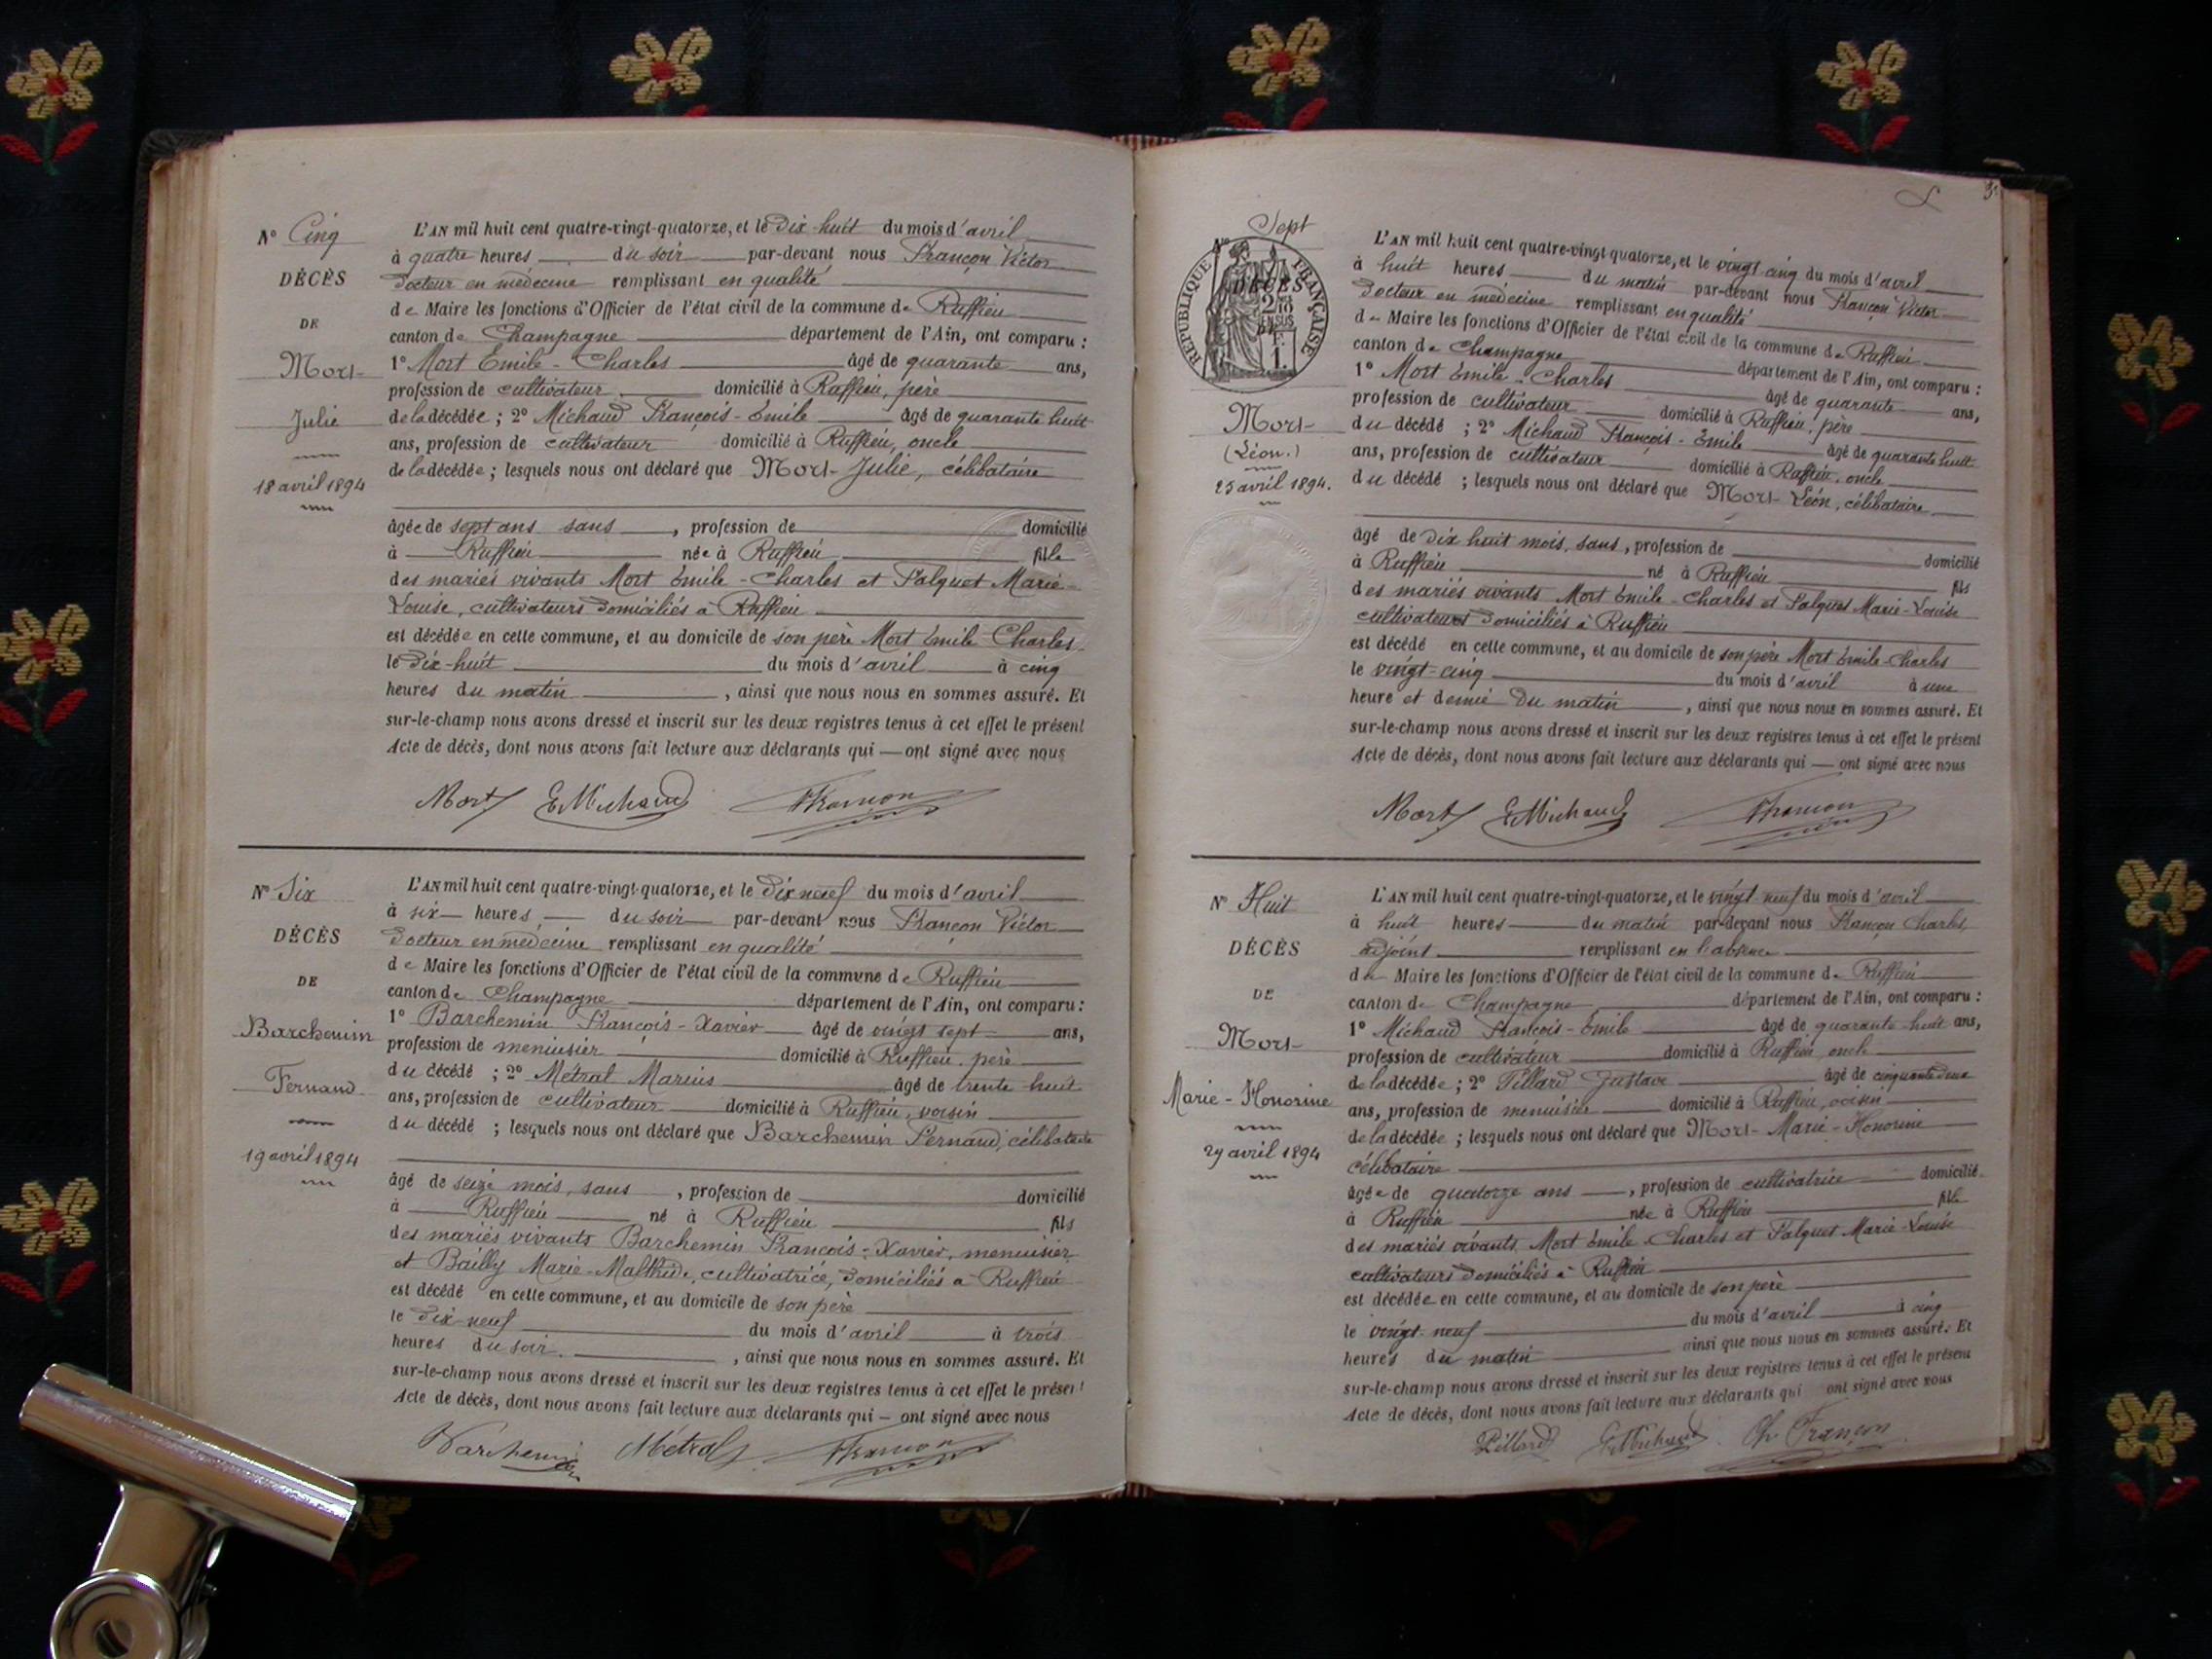 N° Cinq
DÉCÈS
DE
Mort
Julie
18 avril 1894
L'AN mil huit cent quatre-vingt-quatorze, et le dix-huit du mois d'avril
à quatre heures du soir par-devant nous Françon Victor
docteur en médecine remplissant en qualité
de Maire les fonctions d'Officier de l'état civil de la commune de Ruffieu
canton de Champagne département de l'Ain, ont comparu :
1° Mort Emile-Charles âgé de quarante ans,
profession de cultivateur domicilié à Ruffieu, père
de la décédée ; 2° Michaud François-Emile âgé de quarante huit
ans, profession de cultivateur domicilié à Ruffieu, oncle
de la décédée ; lesquels nous ont déclaré que Mort Julie, célibataire
âgée de sept ans sans , profession de domicilié
à Ruffieu née à Ruffieu fille
des mariés vivants Mort Emile-Charles et Falquet Marie-
Louise, cultivateurs domiciliés à Ruffieu
est décédée en cette commune, et au domicile de son père Mort Emile Charles
le dix-huit du mois d'avril à cinq
heures du matin , ainsi que nous nous en sommes assuré. Et
sur-le-champ nous avons dressé et inscrit sur les deux registres tenus à cet effet le présent
Acte de décès, dont nous avons fait lecture aux déclarants qui — ont signé avec nous
Mort E Michaud Françon
N° Six
DÉCÈS
DE
Barchemin
Fernand
19 avril 1894
L'AN mil huit cent quatre-vingt-quatorze, et le dix neuf du mois d'avril
à six heures du soir par-devant nous Françon Victor
docteur en médecine remplissant en qualité
de Maire les fonctions d'Officier de l'état civil de la commune de Ruffieu
canton de Champagne département de l'Ain, ont comparu :
1° Barchemin François-Xavier âgé de vingt sept ans,
profession de menuisier domicilié à Ruffieu, père
du décédé ; 2° Métral Marius âgé de trente huit
ans, profession de cultivateur domicilié à Ruffieu, voisin
du décédé ; lesquels nous ont déclaré que Barchemin Fernand, célibataire
âgé de seize mois, sans , profession de domicilié
à Ruffieu né à Ruffieu fils
des mariés vivants Barchemin François-Xavier, menuisier
et Bailly Marie-Malthide, cultivatrice, domiciliés à Ruffieu
est décédé en cette commune, et au domicile de son père
le dix-neuf du mois d'avril à trois
heures du soir , ainsi que nous nous en sommes assuré. Et
sur-le-champ nous avons dressé et inscrit sur les deux registres tenus à cet effet le présent
Acte de décès, dont nous avons fait lecture aux déclarants qui — ont signé avec nous
Barchemin Métral Françon
N° Sept
RÉPUBLIQUE FRANÇAISE
DÉCÈS
Mort
(Léon.)
25 avril 1894.
L'AN mil huit cent quatre-vingt-quatorze, et le vingt cinq du mois d'avril
à huit heures du matin par-devant nous Françon Victor
docteur en médecine remplissant en qualité
de Maire les fonctions d'Officier de l'état civil de la commune de Ruffieu
canton de Champagne département de l'Ain, ont comparu :
1° Mort Emile-Charles âgé de quarante ans,
profession de cultivateur domicilié à Ruffieu, père
du décédé ; 2° Michaud François-Emile âgé de quarante huit
ans, profession de cultivateur domicilié à Ruffieu, oncle
du décédé ; lesquels nous ont déclaré que Mort Léon, célibataire
âgé de dix huit mois, sans , profession de domicilié
à Ruffieu né à Ruffieu fils
des mariés vivants Mort Emile-Charles et Falquet Marie-Louise
cultivateurs domiciliés à Ruffieu
est décédé en cette commune, et au domicile de son père Mort Emile-Charles
le vingt-cinq du mois d'avril à une
heure et demie du matin , ainsi que nous nous en sommes assuré. Et
sur-le-champ nous avons dressé et inscrit sur les deux registres tenus à cet effet le présent
Acte de décès, dont nous avons fait lecture aux déclarants qui — ont signé avec nous
Mort E Michaud Françon
N° Huit
DÉCÈS
DE
Mort
Marie-Honorine
29 avril 1894
L'AN mil huit cent quatre-vingt-quatorze, et le vingt-neuf du mois d'avril
à huit heures du matin par-devant nous Françon Charles,
adjoint remplissant en l'absence
du Maire les fonctions d'Officier de l'état civil de la commune de Ruffieu
canton de Champagne département de l'Ain, ont comparu :
1° Michaud François-Emile âgé de quarante huit ans,
profession de cultivateur domicilié à Ruffieu, oncle
de la décédée ; 2° Pillard Gustave âgé de cinquante deux
ans, profession de menuisier domicilié à Ruffieu, voisin
de la décédée ; lesquels nous ont déclaré que Mort Marie-Honorine
célibataire
âgée de quatorze ans , profession de cultivatrice domicilié
à Ruffieu née à Ruffieu fille
des mariés vivants Mort Emile-Charles et Falquet Marie-Louise
cultivateurs domiciliés à Ruffieu
est décédée en cette commune, et au domicile de son père
le vingt-neuf du mois d'avril à cinq
heures du matin ainsi que nous nous en sommes assuré. Et
sur-le-champ nous avons dressé et inscrit sur les deux registres tenus à cet effet le présent
Acte de décès, dont nous avons fait lecture aux déclarants qui ont signé avec nous
Pillard E Michaud Ch. Françon